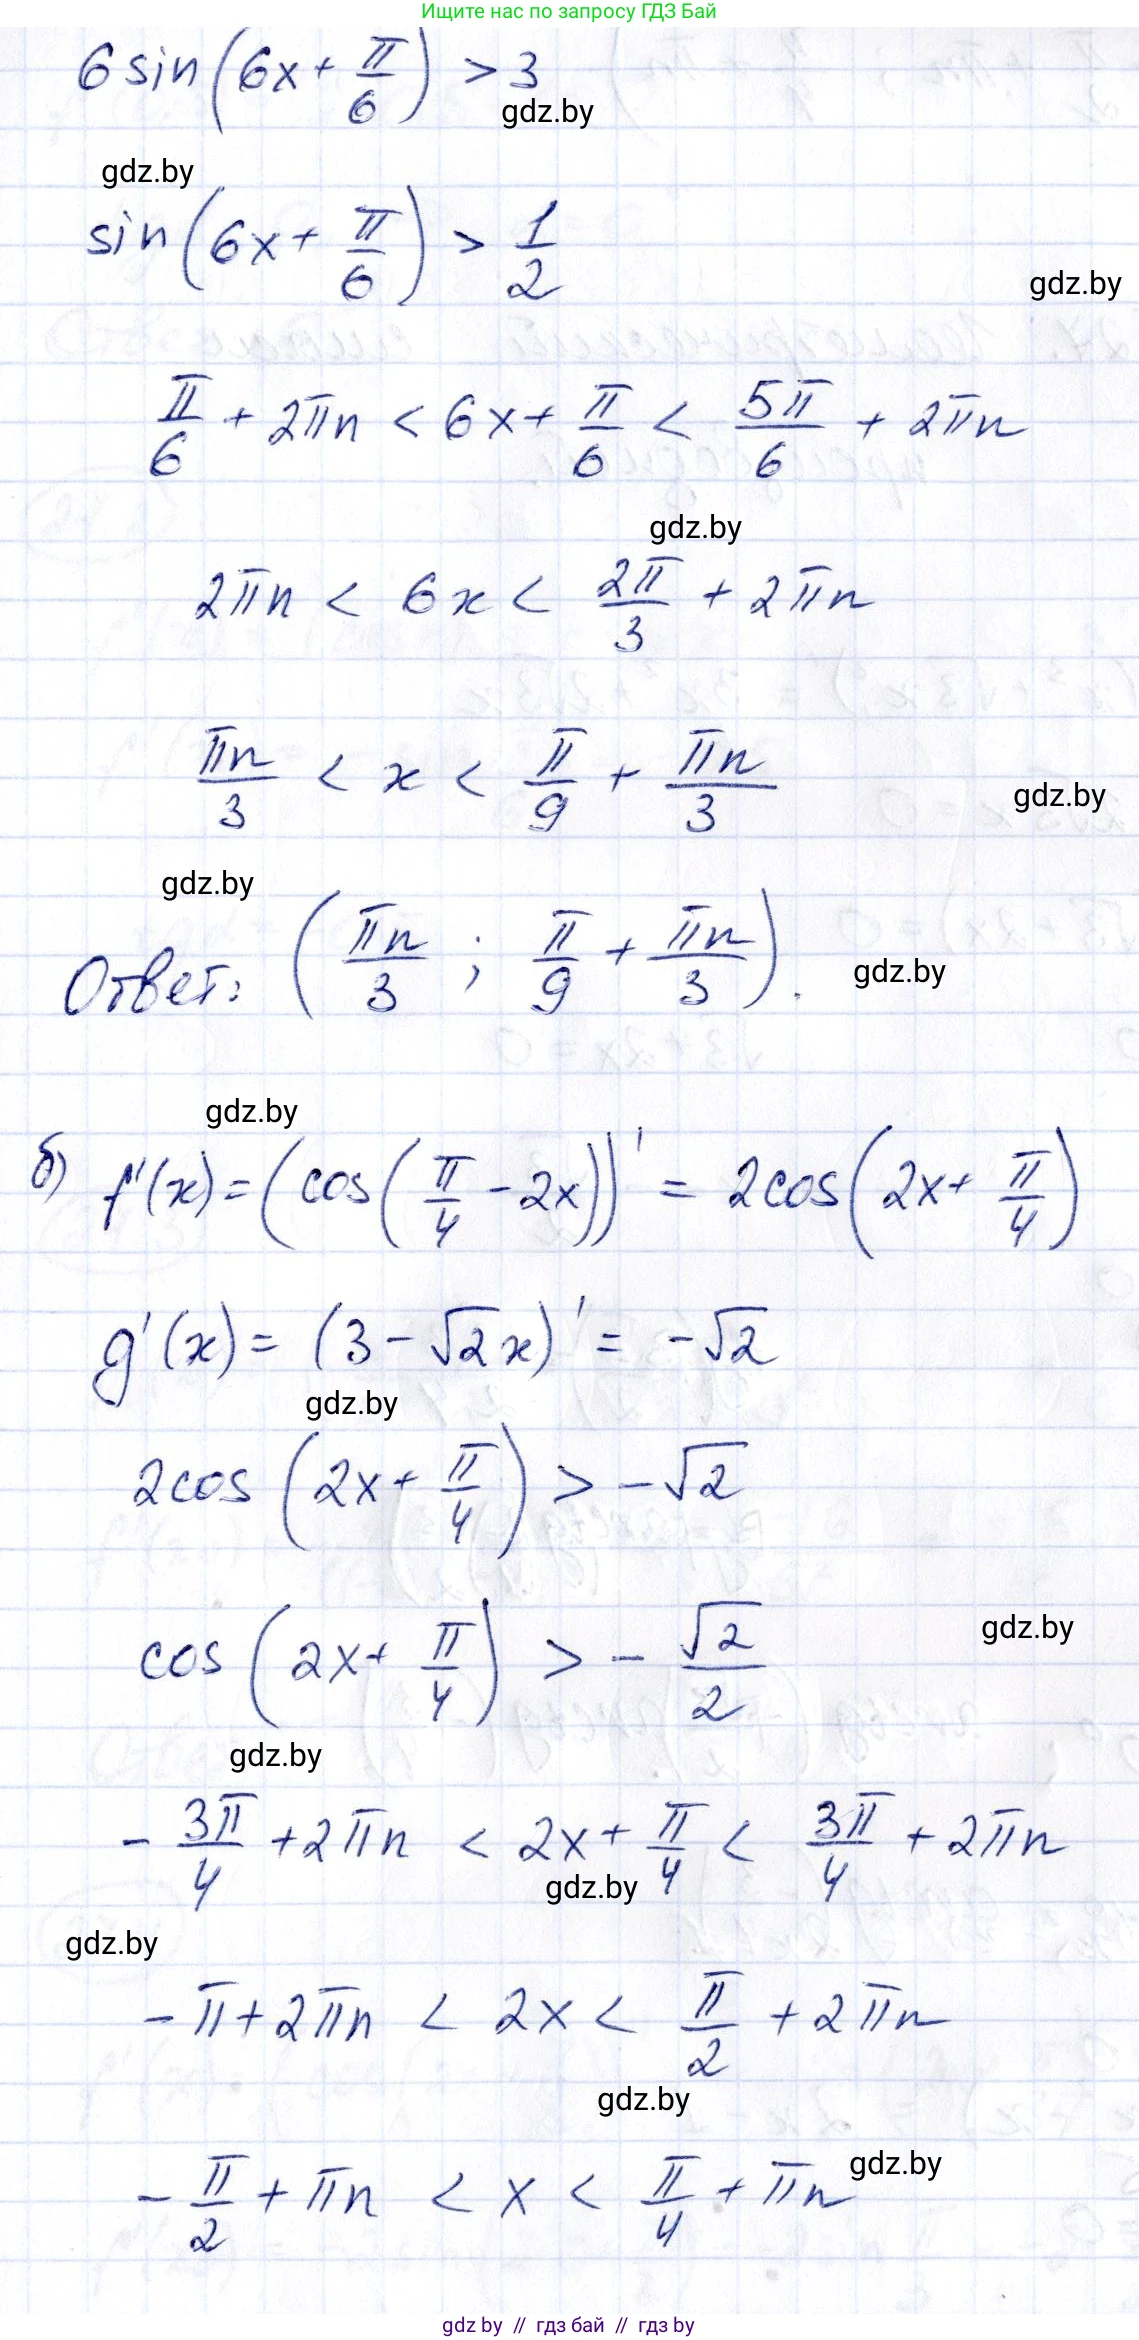 Ищите нас по запросу ГДЗ Бай
6 sin(6x + π/6) > 3
gdz.by
gdz.by
sin(6x + π/6) > 1/2
gdz.by
π/6 + 2πn < 6x + π/6 < 5π/6 + 2πn
gdz.by
2πn < 6x < 2π/3 + 2πn
πn/3 < x < π/9 + πn/3
gdz.by
gdz.by
Ответ: (πn/3 ; π/9 + πn/3).
gdz.by
gdz.by
б) f'(x) = (cos(π/4 - 2x))' = 2cos(2x + π/4)
g'(x) = (3 - √2x)' = -√2
gdz.by
2cos(2x + π/4) > -√2
cos(2x + π/4) > - √2/2
gdz.by
gdz.by
- 3π/4 + 2πn < 2x + π/4 < 3π/4 + 2πn
gdz.by
gdz.by
- π + 2πn < 2x < π/2 + 2πn
gdz.by
gdz.by
- π/2 + πn < x < π/4 + πn
gdz by // гдз бай // гдз by